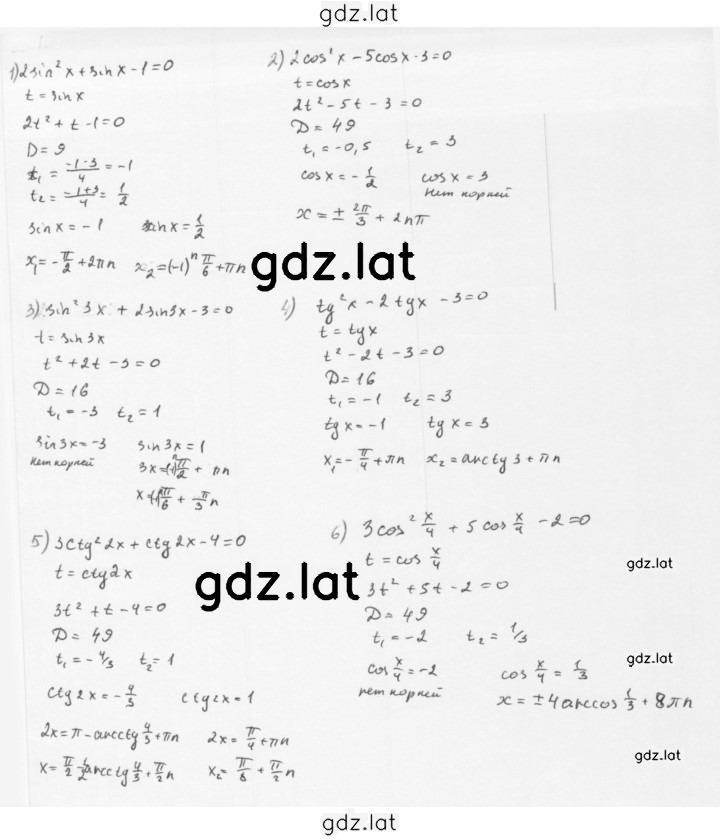 gdz.lat
1) 2sin²x + sinx - 1 = 0
t = sinx
2t² + t - 1 = 0
D = 9
t₁ = (-1-3)/4 = -1
t₂ = (-1+3)/4 = 1/2
sinx = -1 sinx = 1/2
x₁ = -π/2 + 2πn x₂ = (-1)ⁿ π/6 + πn
2) 2cos²x - 5cosx - 3 = 0
t = cosx
2t² - 5t - 3 = 0
D = 49
t₁ = -0,5 t₂ = 3
cosx = -1/2 cosx = 3
нет корней
x = ± 2π/3 + 2nπ
gdz.lat
3) sin²3x + 2sin3x - 3 = 0
t = sin3x
t² + 2t - 3 = 0
D = 16
t₁ = -3 t₂ = 1
sin3x = -3 sin3x = 1
нет корней 3x = (-1)ⁿ π/2 + πn
x = (-1)ⁿ π/6 + π/3 n
4) tg²x - 2tgx - 3 = 0
t = tgx
t² - 2t - 3 = 0
D = 16
t₁ = -1 t₂ = 3
tgx = -1 tgx = 3
x₁ = -π/4 + πn x₂ = arctg3 + πn
5) 3ctg²2x + ctg2x - 4 = 0
t = ctg2x
3t² + t - 4 = 0
D = 49
t₁ = -4/3 t₂ = 1
ctg2x = -4/3 ctg2x = 1
2x = π - arcctg 4/3 + πn 2x = π/4 + πn
x = π/2 - 1/2 arcctg 4/3 + π/2 n x₂ = π/8 + π/2 n
gdz.lat
6) 3cos² x/4 + 5cos x/4 - 2 = 0
t = cos x/4
3t² + 5t - 2 = 0
D = 49
t₁ = -2 t₂ = 1/3
cos x/4 = -2 cos x/4 = 1/3
нет корней x = ±4arccos 1/3 + 8πn
gdz.lat
gdz.lat
gdz.lat
gdz.lat